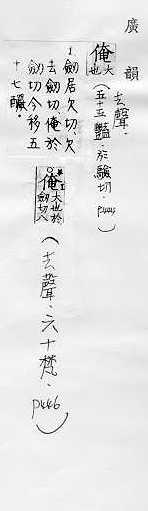 廣韻
俺 大也
(去聲.五十五豔.於驗切.P444)
1 劒居欠切、欠
去劒切、俺於
劒切今移五
十七釅。
俺 大也於劒切又
(去聲.六十梵.P446)